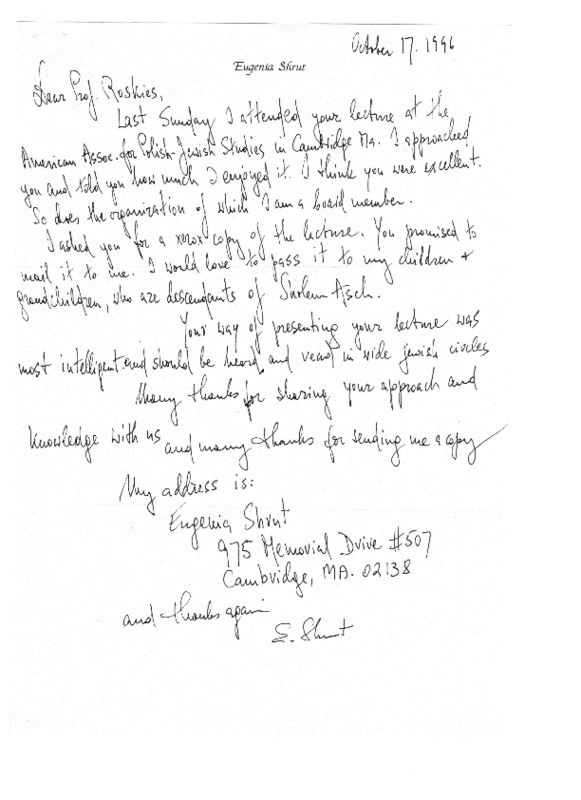 October 17. 1996
Eugenia Shrut
Dear Prof. Roskies,
Last Sunday I attended your lecture at the
American Assoc. for Polish-Jewish Studies in Cambridge Ma. I approached
you and told you how much I enjoyed it. I think you were excellent.
So does the organization of which I am a board member.
I asked you for a xerox copy of the lecture. You promised to
mail it to me. I would love to pass it to my children +
grandchildren, who are descendants of Sholem Asch.
Your way of presenting your lecture was
most intelligent and should be heard and read in wide jewish circles
Many thanks for sharing your approach and
knowledge with us and many thanks for sending me a copy
My address is:
Eugenia Shrut
975 Memorial Drive #507
Cambridge, MA. 02138
and thanks again
E. Shrut